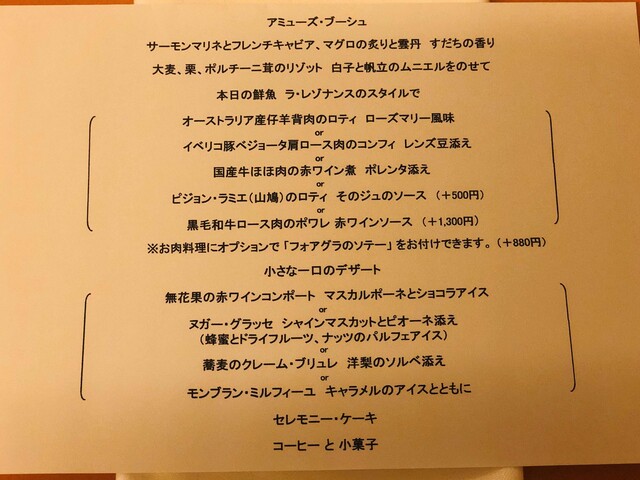 アミューズ・ブーシュ
サーモンマリネとフレンチキャビア、マグロの炙りと雲丹　すだちの香り
大麦、栗、ポルチーニ茸のリゾット　白子と帆立のムニエルをのせて
本日の鮮魚　ラ・レゾナンスのスタイルで
オーストラリア産仔羊背肉のロティ　ローズマリー風味
or
イベリコ豚ベジョータ肩ロース肉のコンフィ　レンズ豆添え
or
国産牛ほほ肉の赤ワイン煮　ポレンタ添え
or
ピジョン・ラミエ（山鳩）のロティ　そのジュのソース　（＋500円）
or
黒毛和牛ロース肉のポワレ 赤ワインソース　（＋1,300円）
※お肉料理にオプションで「フォアグラのソテー」をお付けできます。（＋880円）
小さな一口のデザート
無花果の赤ワインコンポート　マスカルポーネとショコラアイス
or
ヌガー・グラッセ　シャインマスカットとピオーネ添え
（蜂蜜とドライフルーツ、ナッツのパルフェアイス）
or
蕎麦のクレーム・ブリュレ　洋梨のソルベ添え
or
モンブラン・ミルフィーユ　キャラメルのアイスとともに
セレモニー・ケーキ
コーヒー と 小菓子